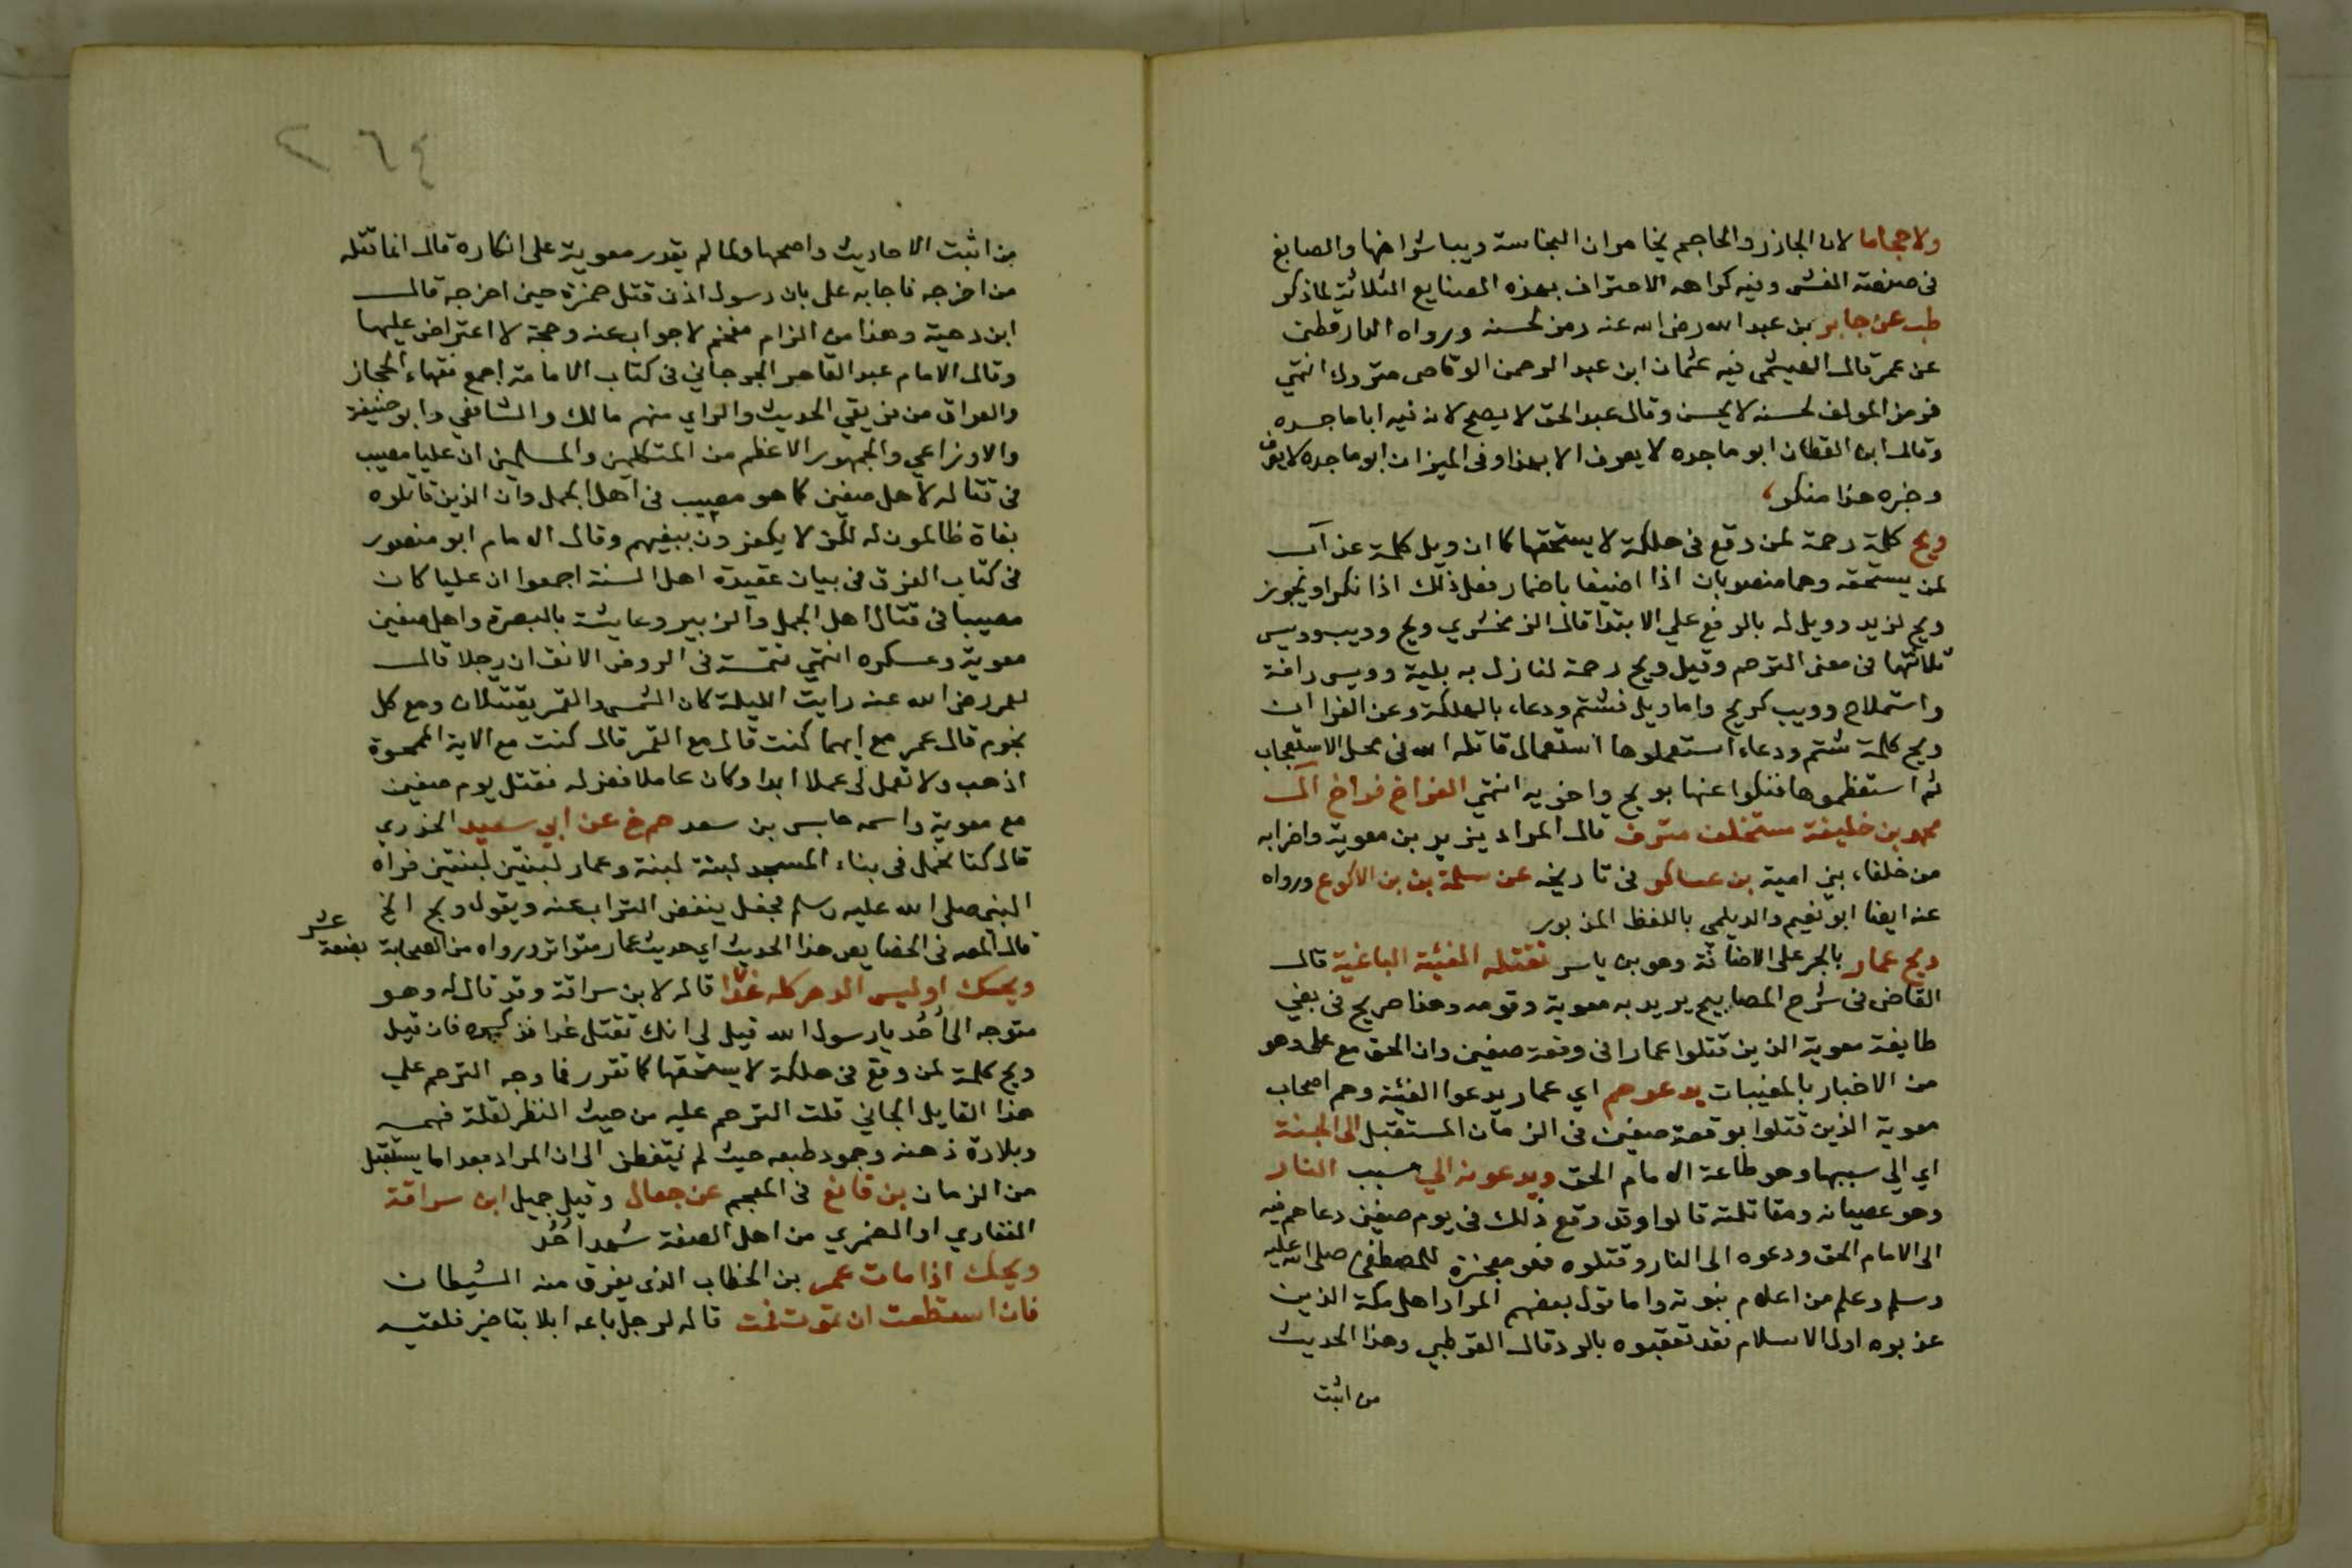 ولا حجاما لان الجازر والحاجم يخامران النجاسة ويباشرانها والصايغ
فى صنعته الغش وفيه كراهه الاحتراف بهذه الصنايع الثلاثة لما ذكر
طب عن جابر بن عبد الله رضى الله عنه رمز لحسنه ورواه الدارقطنى
عن عمر قال الهيثمى فيه عثمان ابن عبد الرحمن الوقاصى متروك انتهي
فرمز المولف لحسنه لا يحسن وقال عبد الحق لا يصح لان فيه ابا ماجده
وقال ابن القطان ابو ماجده لا يعرف الا بهذا وفى الميزان ابو ماجده لا يعرف
وخبره هذا منكر
ويح كلمة رحمة لمن وقع فى هلكة لا يستحقها كما ان ويل كلمة عذاب
لمن يستحقه وهما منصوبان اذا اضيفا باضمار فعل ذلك اذا نكرا ويجوز
ويح لزيد وويل له بالرفع علي الابتدا قال الزمخشري ويح وويب وويس
ثلاثتها فى معنى الترحم وقيل ويح رحمة لنازل به بلية وويس رافة
واستملاح وويب كويح واما ويل فشتم ودعاء بالهلكة وعن الفرا ان
ويح كلمة شتم ودعاء استعملوها استعمال قاتله الله فى محل الاستعجاب
ثم استعظموها فنكوا عنها بويح واخويه انتهي الفراخ فراخ ال
محمد بن خليفة مستخلف مترف قال المراد يزيد بن معوية واضرابه
من خلفاء بني امية بن عساكر فى تاريخه عن سلمة بن بن الاكوع ورواه
عنه ايضا ابو نعيم والديلمي باللفظ المزبور
ويح عمار بالجر على الاضافة وهو بن ياسر تقتله الفئية الباغية قال
القاضى فى شرح المصابيح يريد به معوية وقومه وهذا صريح فى بغي
طايفة معوية الذين قتلوا عمارا فى وقعة صفين وان الحق مع على وهو
من الاخبار بالمغيبات يدعوهم اي عمار يدعوا الفئة وهم اصحاب
معوية الذين قتلوا بوقعة صفين فى الزمان المستقبل الى الجنة
اي الي سببها وهو طاعة الامام الحق ويدعونه الي سبب النار
وهو عصيانه ومقاتلته قالوا وقد وقع ذلك فى يوم صفين دعاهم فيه
الى الامام الحق ودعوه الى النار وقتلوه فهو معجزة للمصطفى صلى الله عليه
وسلم وعلم من اعلام نبوته واما قول بعضهم المراد اهل مكة الذين
عذبوه اول الاسلام فقد تعقبوه بالرد قال القرطبي وهذا الحديث
من اثبت
٢٦٤
من اثبت الاحاديث واصحها ولما لم يقدر معوية على انكاره قال انما قتله
من اخرجه فاجابه على بان رسول اذن قتل حمزة حين اخرجه قال
ابن دحية وهذا من الزام مفحم لا جواب عنه وحجة لا اعتراض عليها
وقال الامام عبد القاهر الجرجاني فى كتاب الامامة اجمع فقهاء الحجاز
والعراق من فريقي الحديث والراي منهم مالك والشافعي وابو حنيفة
والاوزاعي والجمهور الاعظم من المتكلمين والمسلمين ان عليا مصيب
فى قتاله لاهل صفين كما هو مصيب فى اهل الجمل وان الذين قاتلوه
بغاة ظالمون له لكن لا يكفرون ببغيهم وقال الامام ابو منصور
فى كتاب الفرق فى بيان عقيدة اهل السنة اجمعوا ان عليا كان
مصيبا فى قتال اهل الجمل والزبير وعايشة بالبصرة واهل صفين
معوية وعسكره انتهي تتمة فى الروض الانف ان رجلا قال
لعمر رضى الله عنه رايت الليلة كان الشمس والقمر يقتتلان ومع كل
نجوم قال عمر مع ايهما كنت قال مع القمر قال كنت مع الاية الممحوة
اذهب ولا تعمل لى عملا ابدا وكان عاملا فعزله فقتل يوم صفين
مع معوية واسمه حابس بن سعد حم خ عن ابي سعيد الخدري
قال كنا نحمل فى بناء المسجد لبنة لبنة وعمار لبنتين لبنتين فراه
النبى صلى الله عليه وسلم فجعل ينفض التراب عنه ويقول ويح الخ
قال المص فى الخصايص هذا الحديث اي حديث عمار متواتر ورواه من الصحابة بضعة عشر
ويحك او ليس الدهر كله غدا قاله لابن سراقة وقد قال له وهو
متوجه الى اُحُد يا رسول الله قيل لى انك تقتل غدا فذكره فان قيل
ويح كلمة لمن وقع فى هلكة لا يستحقها كما تقرر فما وجه الترحم علي
هذا القايل الجاني قلت الترحم عليه من حيث النظر لقلة فهمه
وبلادة ذهنه وجمود طبعه حيث لم يتفطن الى ان المراد بغد اما يستقبل
من الزمان بن قانع فى المعجم عن جعال وقيل جميل ابن سراقة
الغفاري او الضمري من اهل الصفة شهد اُحُد
ويحك اذا مات عمر بن الخطاب الذى يفرق منه الشيطان
فان استطعت ان تموت فمت قاله لرجل باعه ابلا بتاخير فلقيه